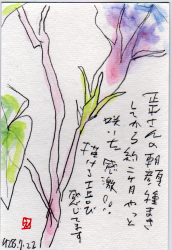 正平さんの朝顔種まき
してから約二ヶ月やっと
咲いた感激!!
描ける喜び
感じてます
H28.7.22